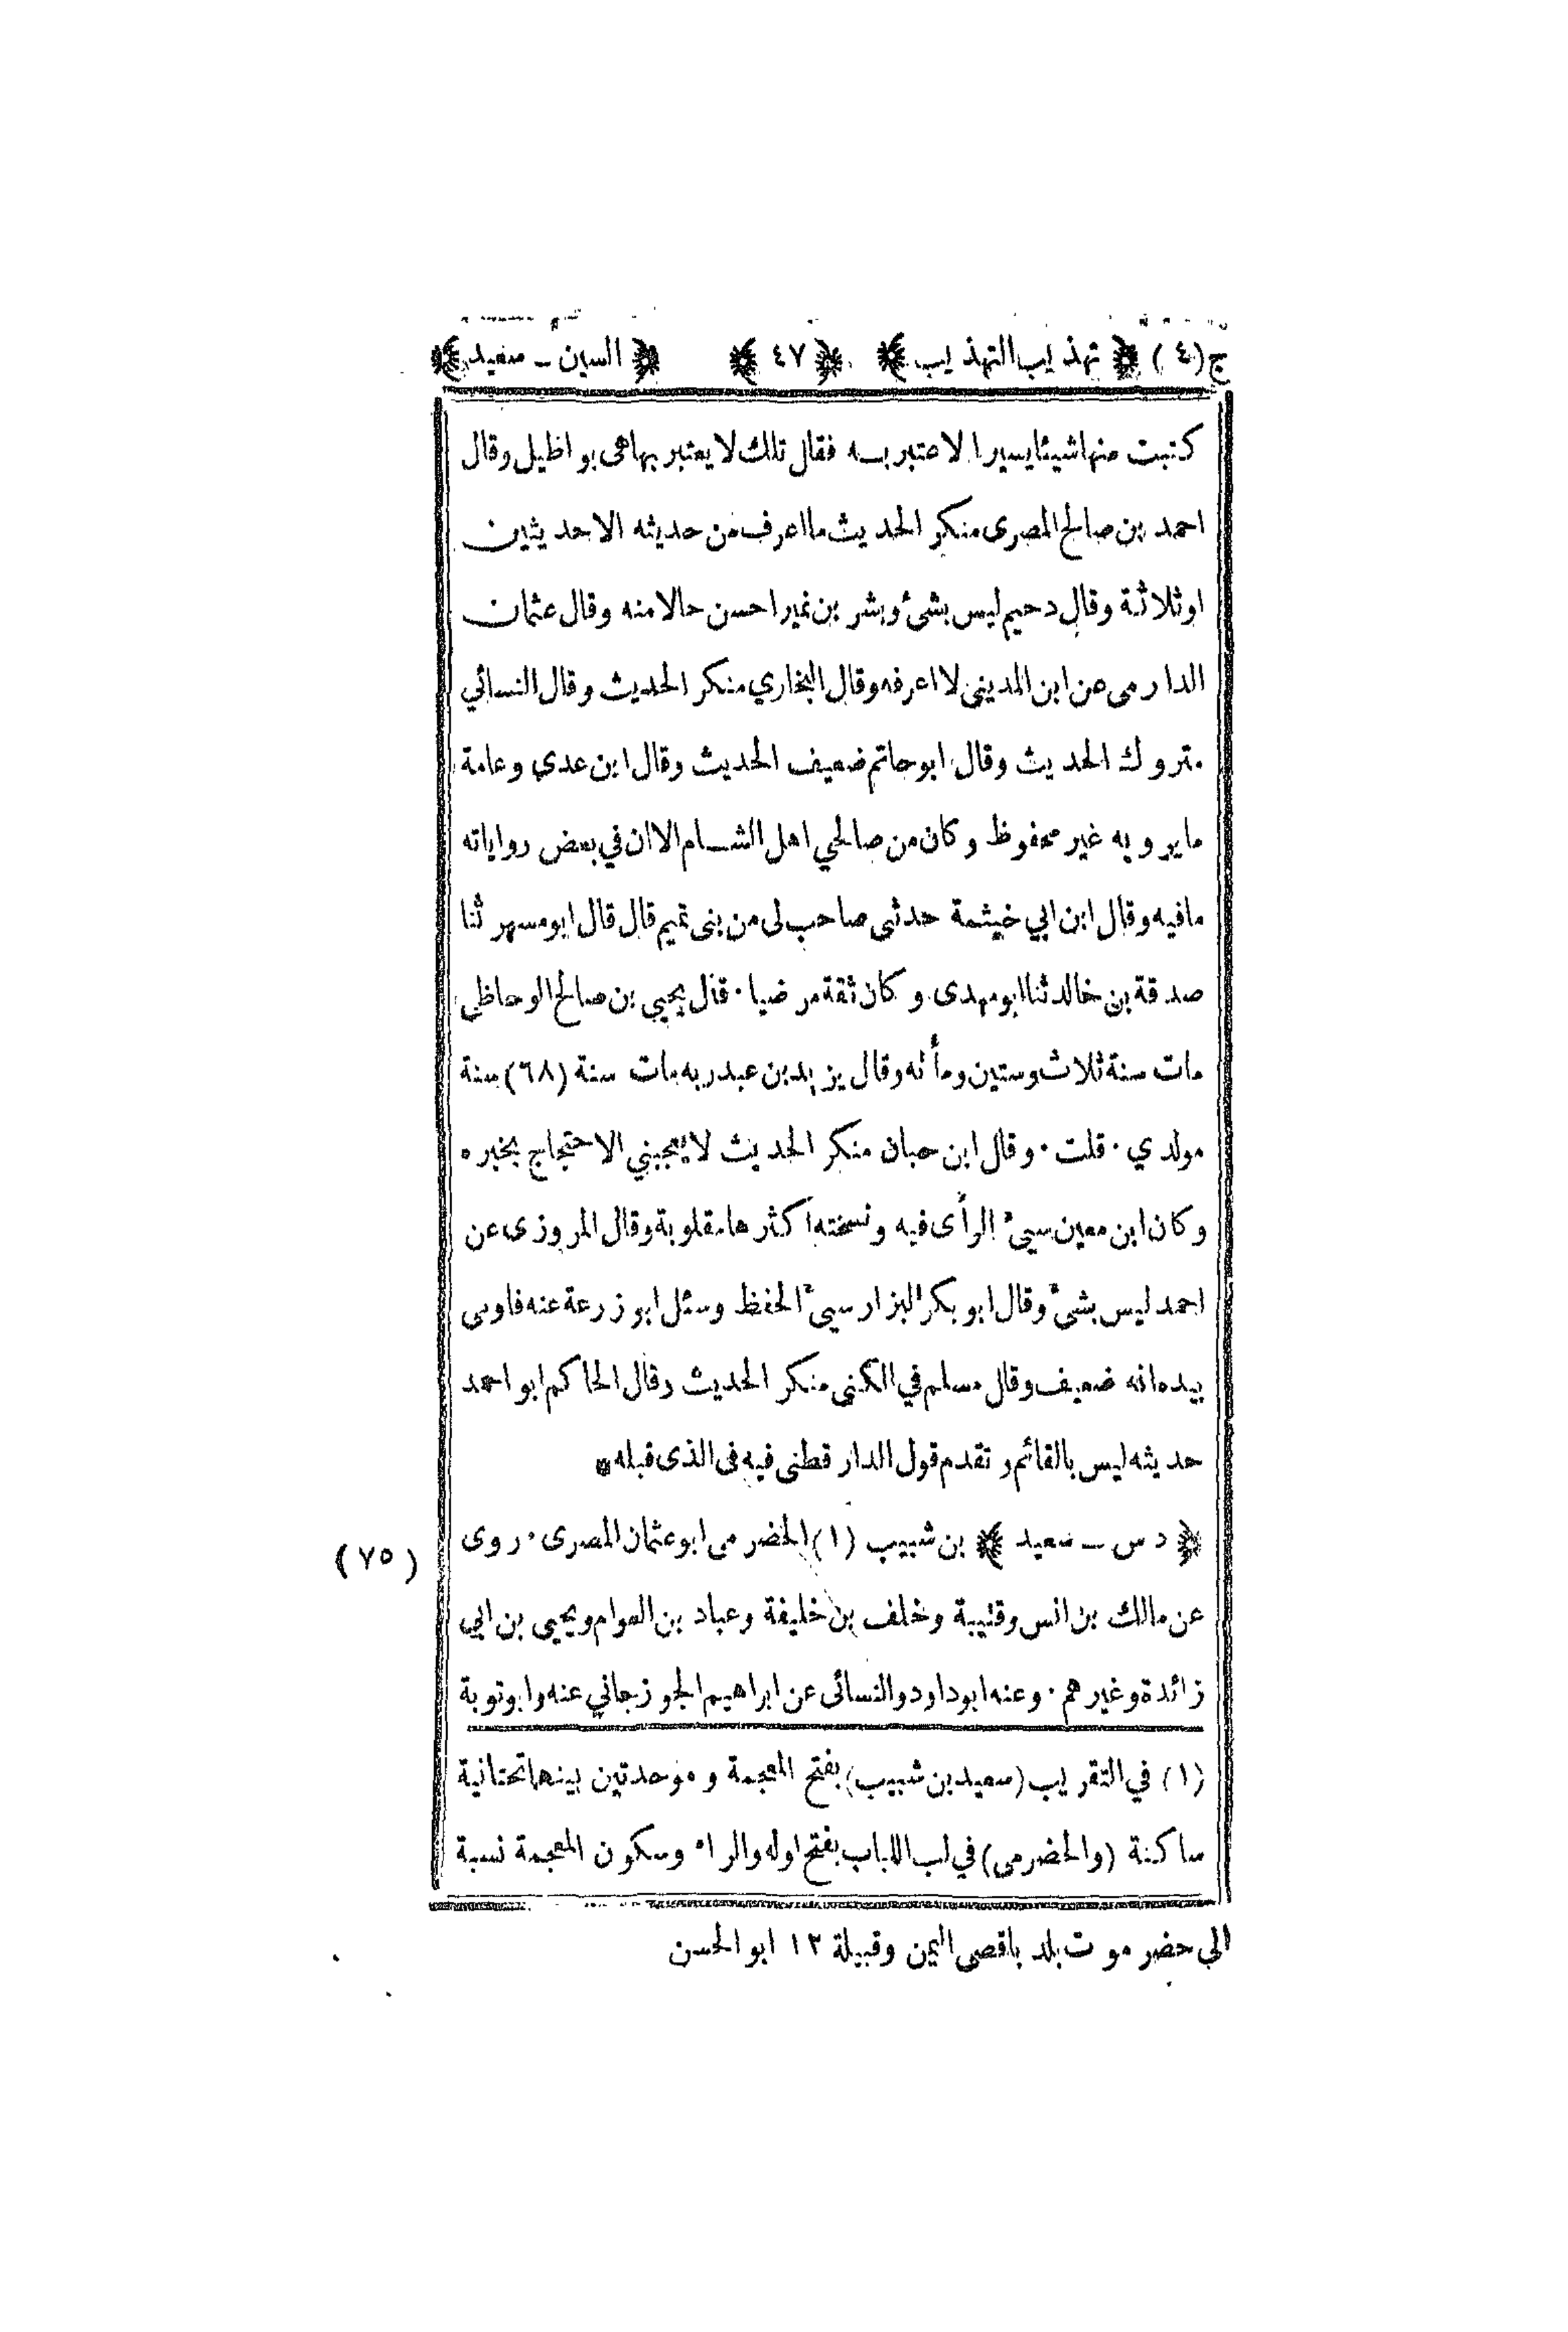 ج (٤) ﴿ تهذيب التهذيب ﴾ ﴿ ٤٧ ﴾ ﴿ السين ــ سعيد ﴾
كتبت منها شيئا يسيرا لاعتبر به فقال تلك لا يعتبر بها هى بواطيل وقال
احمد بن صالح المصرى منكر الحديث ما اعرف من حديثه الا حديثين
او ثلاثة وقال دحيم ليس بشئ وبشر بن نمير احسن حالا منه وقال عثمان
الدارمى عن ابن المدينى لا اعرفه وقال البخاري منكر الحديث وقال النسائي
متروك الحديث وقال ابو حاتم ضعيف الحديث وقال ابن عدي وعامة
ما يرويه غير محفوظ وكان من صالحي اهل الشام الا ان في بعض رواياته
ما فيه وقال ابن ابي خيثمة حدثنى صاحب لى من بنى تميم قال قال ابو مسهر ثنا
صدقة بن خالد ثنا ابو مهدى وكان ثقة مرضيا · قال يحيي بن صالح الوحاظي
مات سنة ثلاث وستين ومأئه وقال يزيد بن عبد ربه مات سنة (٦٨) سنة
مولدي · قلت · وقال ابن حبان منكر الحديث لا يعجبني الاحتجاج بخبره
وكان ابن معين سيئ الرأى فيه ونسخته اكثرها مقلوبة وقال المروزى عن
احمد ليس بشئ وقال ابو بكر البزار سيئ الحفظ وسئل ابو زرعة عنه فاومى
بيده انه ضعيف وقال مسلم في الكنى منكر الحديث وقال الحاكم ابو احمد
حديثه ليس بالقائم وتقدم قول الدارقطنى فيه فى الذى قبله *
﴿ د س ــ سعيد ﴾ بن شبيب (١) الحضرمى ابو عثمان المصرى · روى
(٧٥)
عن مالك بن انس وقتيبة وخلف بن خليفة وعباد بن العوام ويحيى بن ابي
زائدة وغيرهم · وعنه ابو داود والنسائى عن ابراهيم الجوزجاني عنه وابو توبة
(١) في التقريب (سعيد بن شبيب) بفتح المعجمة وموحدتين بينهما تحتانية
ساكنة (والحضرمى) في لب اللباب بفتح اوله والراء وسكون المعجمة نسبة
الى حضرموت بلد باقصى اليمن وقبيلة ١٢ ابو الحسن